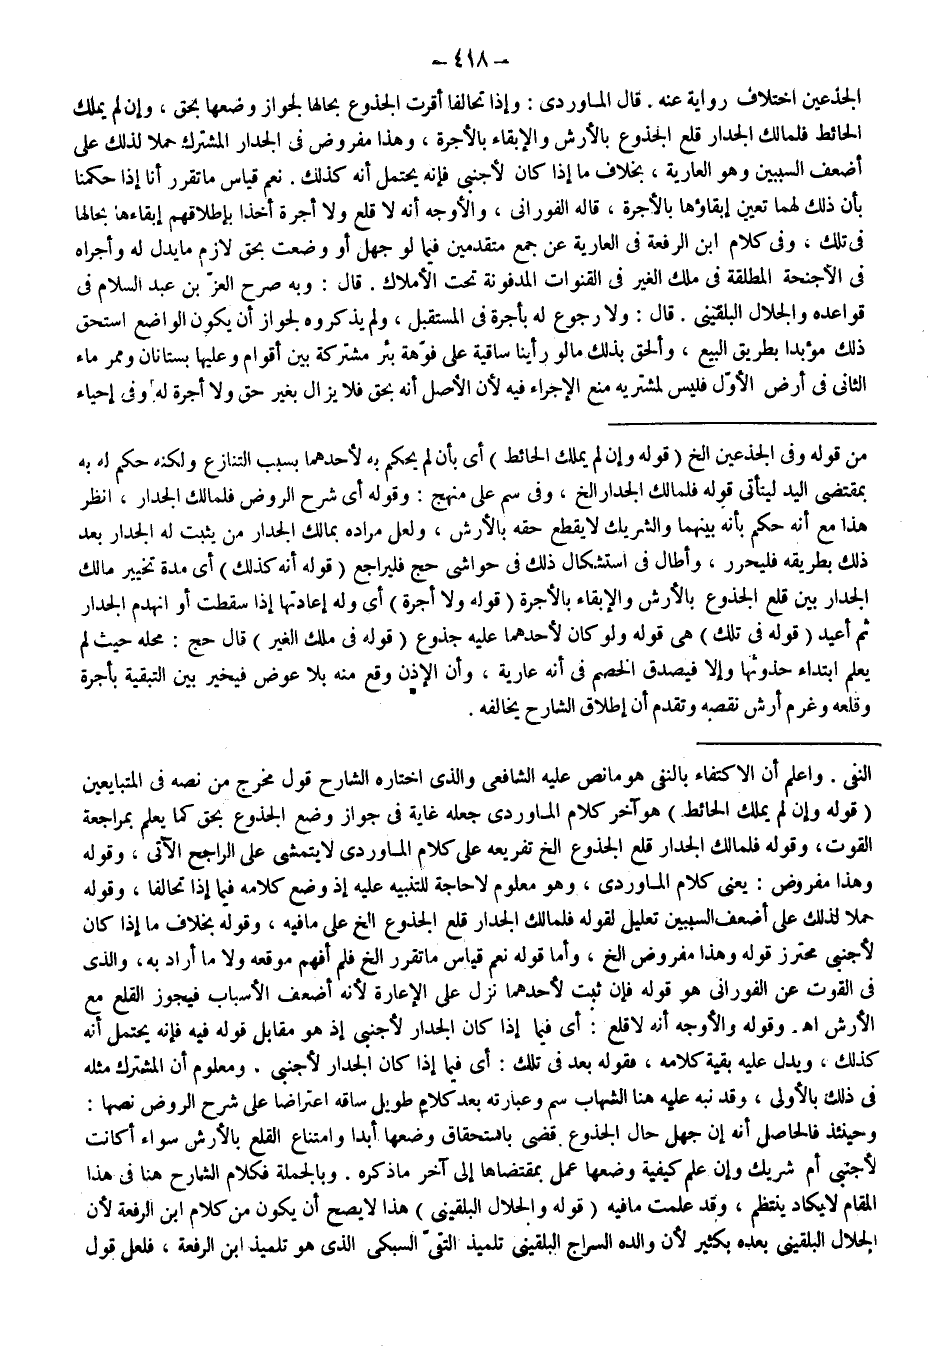 - ٤١٨ -
الجذعين اختلاف رواية عنه . قال المـاوردى : وإذا تحالفا أقرت الجذوع بحالها لجواز وضعها بحق ، وإن لم يملك
الحائط فلمالك الجدار قلع الجذوع بالأرش والإبقاء بالأجرة ، وهذا مفروض فى الجدار المشترك حملا لذلك على
أضعف السببين وهو العارية ، بخلاف ما إذا كان لأجنبى فإنه يحتمل أنه كذلك . نعم قياس ماتقرر أنا إذا حكمنا
بأن ذلك لهما تعين إبقاؤها بالأجرة ، قاله الفورانى ، والأوجه أنه لا قلع ولا أجرة أخذا بإطلاقهم إبقاءها بحالها
فى تلك ، وفى كلام ابن الرفعة فى العارية عن جمع متقدمين فيما لو جهل أو وضعت بحق لازم مايدل له وأجراه
فى الأجنحة المطلقة فى ملك الغير فى القنوات المدفونة تحت الأملاك . قال : وبه صرح العزّ بن عبد السلام فى
قواعده والجلال البلقينى . قال : ولا رجوع له بأجرة فى المستقبل ، ولم يذكروه لجواز أن يكون الواضع استحق
ذلك مؤبدا بطريق البيع ، وألحق بذلك مالو رأينا ساقية على فوّهة بئر مشتركة بين أقوام وعليها بستانان وممر ماء
الثانى فى أرض الأوّل فليس لمشتريه منع الإجراء فيه لأن الأصل أنه بحق فلا يزال بغير حق ولا أجرة له ، وفى إحياء
من قوله وفى الجذعين الخ ( قوله وإن لم يملك الحائط ) أى بأن لم يحكم به لأحدهما بسبب التنازع ولكنه حكم له به
بمقتضى اليد ليتأتى قوله فلمالك الجدار الخ ، وفى سم على منهج : وقوله أى شرح الروض فلمالك الجدار ، انظر
هذا مع أنه حكم بأنه بينهما والشريك لايقطع حقه بالأرش ، ولعل مراده بمالك الجدار من يثبت له الجدار بعد
ذلك بطريقه فليحرر ، وأطال فى استشكال ذلك فى حواشى حج فليراجع ( قوله أنه كذلك ) أى مدة تخيير مالك
الجدار بين قلع الجذوع بالأرش والإبقاء بالأجرة ( قوله ولا أجرة ) أى وله إعادتها إذا سقطت أو انهدم الجدار
ثم أعيد ( قوله فى تلك ) هى قوله ولو كان لأحدهما عليه جذوع ( قوله فى ملك الغير ) قال حج : محله حيث لم
يعلم ابتداء حدوثها وإلا فيصدق الخصم فى أنه عارية ، وأن الإذن وقع منه بلا عوض فيخير بين التبقية بأجرة
وقلعه وغرم أرش نقصه وتقدم أن إطلاق الشارح يخالفه .
النفى . واعلم أن الاكتفاء بالنفى هو مانص عليه الشافعى والذى اختاره الشارح قول مخرج من نصه فى المتبايعين
( قوله وإن لم يملك الحائط ) هو آخر كلام المـاوردى جعله غاية فى جواز وضع الجذوع بحق كما يعلم بمراجعة
القوت ، وقوله فلمالك الجدار قلع الجذوع الخ تفريعه على كلام المـاوردى لايتمشى على الراجح الآتى ، وقوله
وهذا مفروض : يعنى كلام المـاوردى ، وهو معلوم لاحاجة للتنبيه عليه إذ وضع كلامه فيما إذا تحالفا ، وقوله
حملا لذلك على أضعف السببين تعليل لقوله فلمالك الجدار قلع الجذوع الخ على مافيه ، وقوله بخلاف ما إذا كان
لأجنبى محترز قوله وهذا مفروض الخ ، وأما قوله نعم قياس ماتقرر الخ فلم أفهم موقعه ولا ما أراد به ، والذى
فى القوت عن الفورانى هو قوله فإن ثبت لأحدهما نزل على الإعارة لأنه أضعف الأسباب فيجوز القلع مع
الأرش اهـ . وقوله والأوجه أنه لاقلع : أى فيما إذا كان الجدار لأجنبى إذ هو مقابل قوله فيه فإنه يحتمل أنه
كذلك ، ويدل عليه بقية كلامه ، فقوله بعد فى تلك : أى فيما إذا كان الجدار لأجنبى . ومعلوم أن المشترك مثله
فى ذلك بالأولى ، وقد نبه عليه هنا الشهاب سم وعبارته بعد كلام طويل ساقه اعتراضا على شرح الروض نصها :
وحينئذ فالحاصل أنه إن جهل حال الجذوع قضى باستحقاق وضعها أبدا وامتناع القلع بالأرش سواء أكانت
لأجنبى أم شريك وإن علم كيفية وضعها عمل بمقتضاها إلى آخر ماذكره . وبالجملة فكلام الشارح هنا فى هذا
المقام لايكاد ينتظم ، وقد علمت مافيه ( قوله والجلال البلقينى ) هذا لايصح أن يكون من كلام ابن الرفعة لأن
الجلال البلقينى بعده بكثير لأن والده السراج البلقينى تلميذ التقىّ السبكى الذى هو تلميذ ابن الرفعة ، فلعل قول